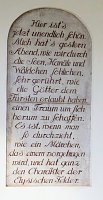 Hier ist's
jetzt unendlich schön.
Mich hat's gestern
Abend, wie wir durch
die Seen, Kanäle und
Wäldchen schlichen,
sehr gerührt, wie
die Götter dem
Fürsten erlaubt haben,
einen Traum um sich
herum zu schaffen.
Es ist, wenn man
so durchzieht,
wie ein Märchen, das
einem vorgetragen
wird und hat ganz
den Charakter der
Elysischen Felder.